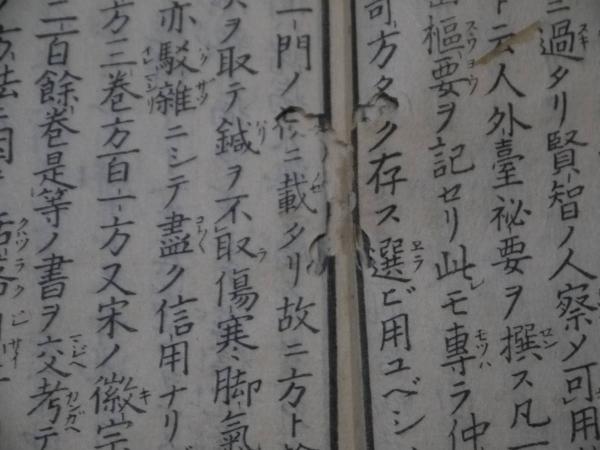 過タリ賢智ノ人察メ可用
ト云人外臺祕要ヲ撰ス凡
樞要ヲ記セリ此モ專ラ仲
方多ク存ス選ビ用ユベシ
一門ノ ニ載タリ故ニ方ト
ヲ取テ鍼ヲ不取傷寒脚氣
亦駁雜ニシテ盡ク信用ナリ
方三巻方百一方又宋ノ徽宗
二百餘巻是等ノ書ヲ交考テ
方法